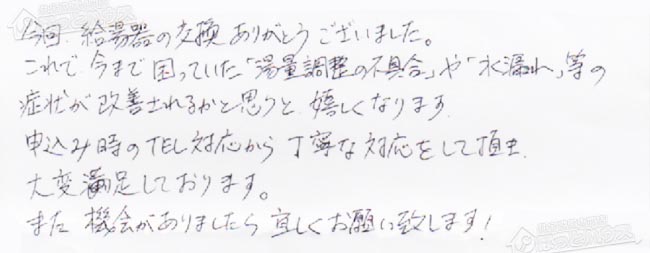 今回 給湯器の交換ありがとうございました。
これで今まで困っていた「湯量調整の不具合」や「水漏れ」等の
症状が改善されるかと思うと、嬉しくなります。
申込み時のTEL対応から丁寧な対応をして頂き
大変満足しております。
また機会がありましたら宜しくお願い致します！